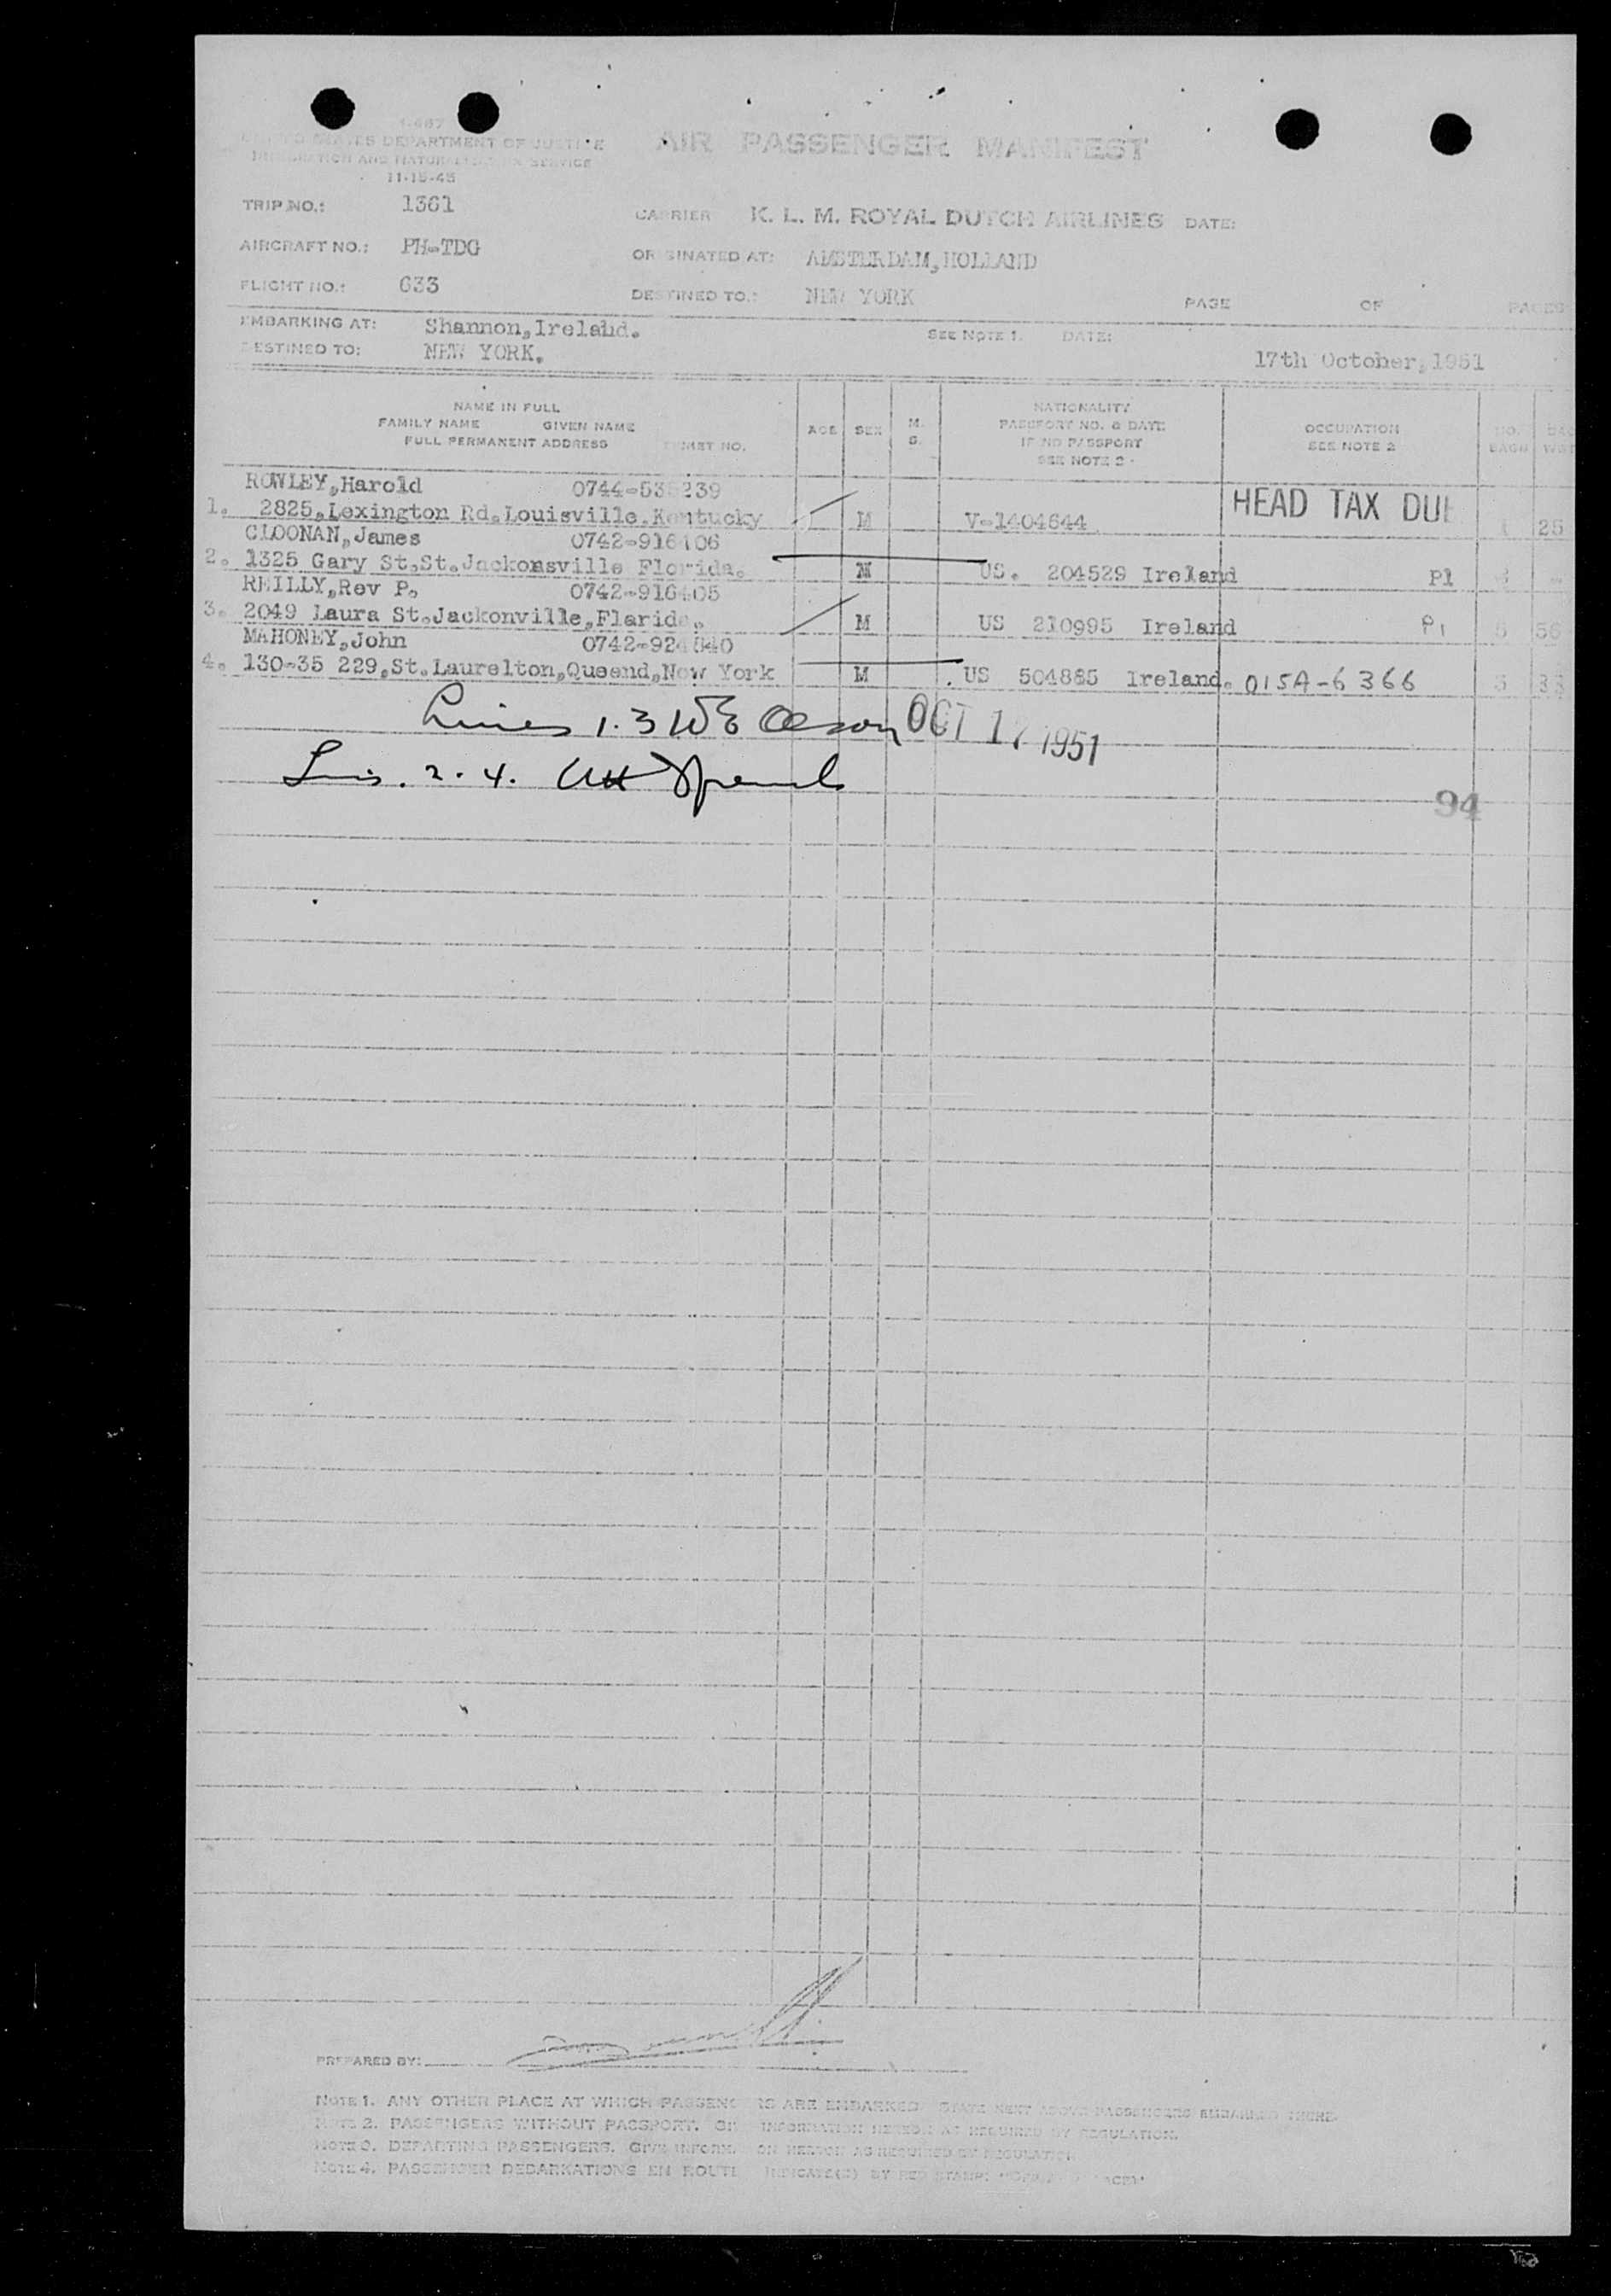 I-487
UNITED STATES DEPARTMENT OF JUSTICE
IMMIGRATION AND NATURALIZATION SERVICE
11-15-45
AIR PASSENGER MANIFEST
TRIP NO.: 1361
CARRIER K. L. M. ROYAL DUTCH AIRLINES DATE:
AIRCRAFT NO.: PH-TDG
ORIGINATED AT: AMSTERDAM, HOLLAND
FLIGHT NO.: 633
DESTINED TO.: NEW YORK
PAGE OF PAGES
EMBARKING AT: Shannon, Ireland.
SEE NOTE 1. DATE:
DESTINED TO: NEW YORK.
17th October, 1951
NAME IN FULL
FAMILY NAME GIVEN NAME
FULL PERMANENT ADDRESS TICKET NO.
AGE SEX M. S.
NATIONALITY
PASSPORT NO. & DATE
IF NO PASSPORT
SEE NOTE 2
OCCUPATION
SEE NOTE 2
NO. BAGG
ROWLEY, Harold 0744-535239
HEAD TAX DUE
1. 2825, Lexington Rd. Louisville. Kentucky M V-1404644 1 25
CLOONAN, James 0742-916406
2. 1325 Gary St. St. Jackonsville Florida. M US. 204529 Ireland P1
REILLY, Rev P. 0742-916405
3. 2049 Laura St. Jackonville, Flarida. M US 210995 Ireland P1 5 56
MAHONEY, John 0742-924540
4. 130-35 229, St. Laurelton, Queend, New York M US 504885 Ireland. 015A-6366 3 33
Lines 1.3 WE Olson OCT 17 1951
Lines. 2. 4.
94
PREPARED BY:
NOTE 1. ANY OTHER PLACE AT WHICH PASSENGERS ARE EMBARKED STATE NEXT ABOVE PASSENGERS EMBARKED THERE.
NOTE 2. PASSENGERS WITHOUT PASSPORT. GIVE INFORMATION HEREON AS REQUIRED BY REGULATION.
NOTE 3. DEPARTING PASSENGERS. GIVE INFORMATION HEREON AS REQUIRED BY REGULATION
NOTE 4. PASSENGER DEBARKATIONS EN ROUTE INDICATE(D) BY RED STAMP: